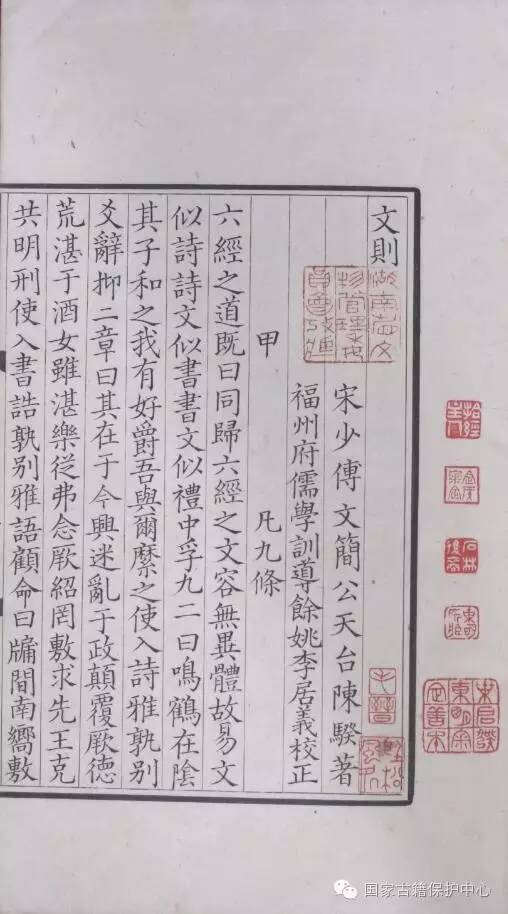 文則
宋少傅文簡公天台陳騤著
福州府儒學訓導餘姚李居義校正
甲　凡九條
六經之道既曰同歸六經之文容無異體故易文
似詩詩文似書書文似禮中孚九二曰鳴鶴在陰
其子和之我有好爵吾與爾縻之使入詩雅孰別
爻辭抑二章曰其在于今興迷亂于政顛覆厥德
荒湛于酒女雖湛樂從弗念厥紹罔敷求先王克
共明刑使入書誥孰別雅語顧命曰牖間南嚮敷
毛晉
石林後裔
国家古籍保护中心